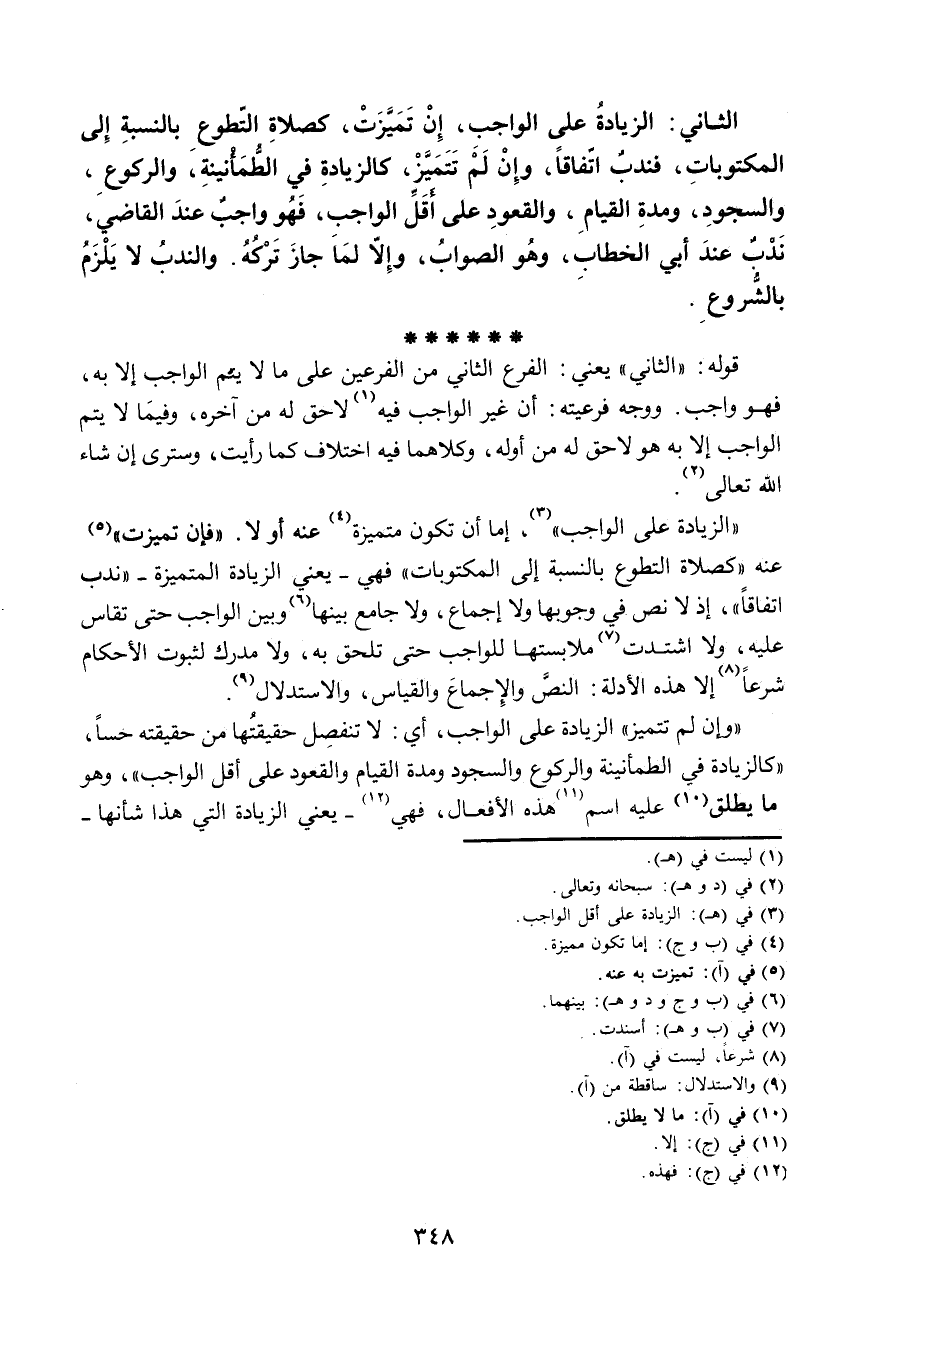 الثاني: الزيادةُ على الواجبِ، إِنْ تَمَيَّزَتْ، كصلاةِ التّطوعِ بالنسبةِ إِلى
المكتوباتِ، فندبٌ اتّفاقاً، وإِنْ لَمْ تَتَمَيَّزْ، كالزيادةِ في الطُّمَأْنينةِ، والركوعِ،
والسجودِ، ومدةِ القيامِ، والقعودِ على أَقَلِّ الواجبِ، فَهُو واجبٌ عندَ القاضي،
نَدْبٌ عندَ أبي الخطابِ، وهُو الصوابُ، وإِلّا لمَا جازَ تَرْكُهُ. والندبُ لا يَلْزَمُ
بالشُّروعِ.
******
قوله: «الثاني» يعني: الفرع الثاني من الفرعين على ما لا يتم الواجب إلا به،
فهو واجب. ووجه فرعيته: أن غير الواجب فيه(١) لاحق له من آخره، وفيمَا لا يتم
الواجب إلا به هو لاحق له من أوله، وكلاهما فيه اختلاف كما رأيت، وسترى إن شاء
الله تعالى(٢).
«الزيادة على الواجب»(٣)، إما أن تكون متميزة(٤) عنه أو لا. «فإن تميزت»(٥)
عنه «كصلاة التطوع بالنسبة إلى المكتوبات» فهي ـ يعني الزيادة المتميزة ـ «ندب
اتفاقاً»، إذ لا نص في وجوبها ولا إجماع، ولا جامع بينها(٦) وبين الواجب حتى تقاس
عليه، ولا اشتدت(٧) ملابستها للواجب حتى تلحق به، ولا مدرك لثبوت الأحكام
شرعاً(٨) إلا هذه الأدلة: النصَّ والإِجماعَ والقياس، والاستدلال(٩).
«وإن لم تتميز» الزيادة على الواجب، أي: لا تنفصِل حقيقتُها من حقيقته حساً،
«كالزيادة في الطمأنينة والركوع والسجود ومدة القيام والقعود على أقل الواجب»، وهو
ما يطلق(١٠) عليه اسم(١١) هذه الأفعال، فهي(١٢) ـ يعني الزيادة التي هذا شأنها ـ
(١) ليست في (هـ).
(٢) في (د و هـ): سبحانه وتعالى.
(٣) في (هـ): الزيادة على أقل الواجب.
(٤) في (ب و ج): إما تكون مميزة.
(٥) في (آ): تميزت به عنه.
(٦) في (ب و ج و د و هـ): بينهما.
(٧) في (ب و هـ): أسندت.
(٨) شرعاً، ليست في (آ).
(٩) والاستدلال: ساقطة من (آ).
(١٠) في (آ): ما لا يطلق.
(١١) في (ج): إلا.
(١٢) في (ج): فهذه.
٣٤٨